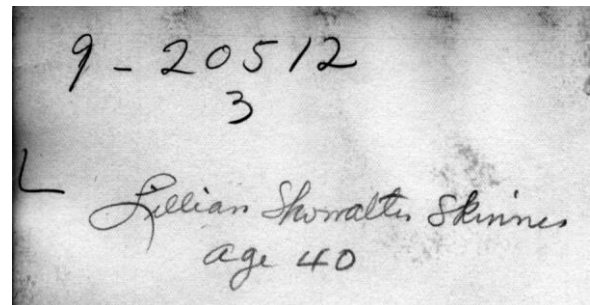 9-20512
3
L
Lillian Showalter Skinner
age 40